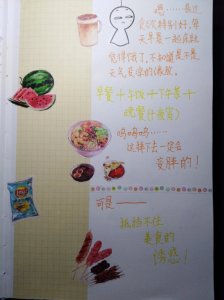 嗯……最近
食欲特别好,每
天早晨一起床就
觉得饿了,不知道是不是
天气变凉的缘故。
早餐+午饭+下午茶+
晚餐(+夜宵)
呜呜呜……
这样下去一定会
变胖的!
可是——
抵挡不住
美食的
诱惑!